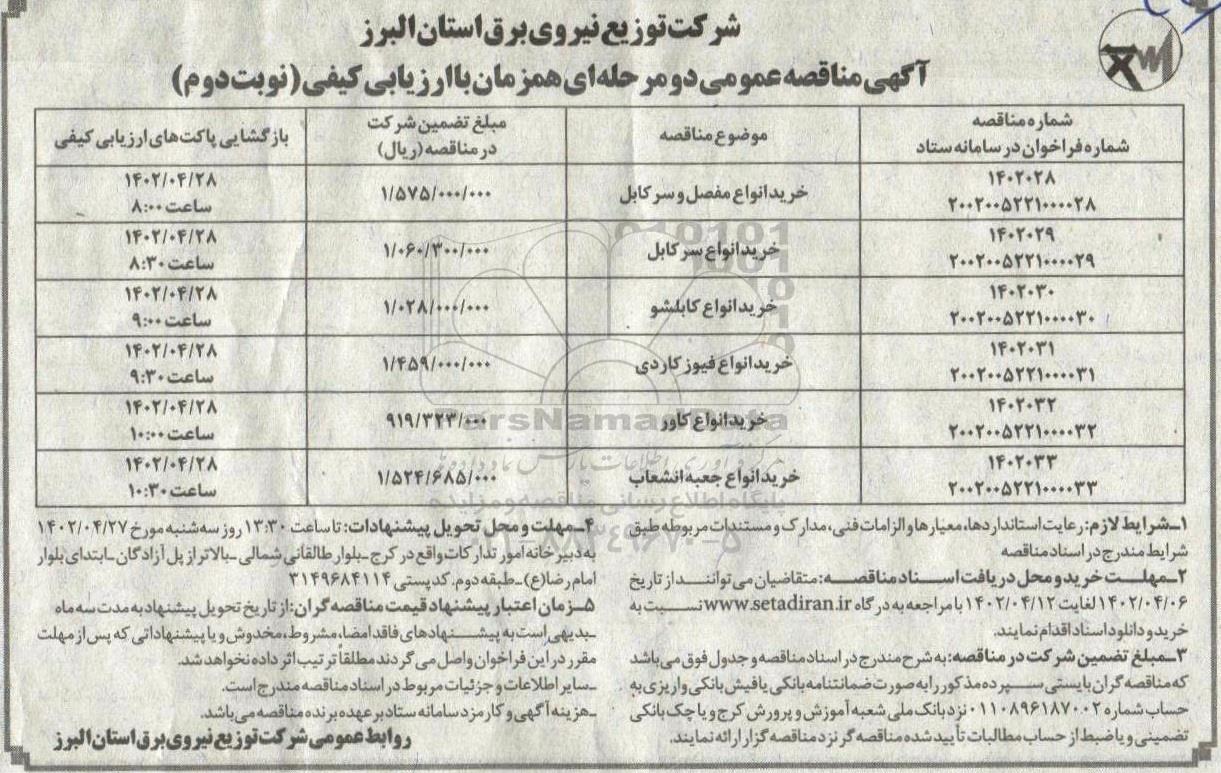 شرکت توزیع نیروی برق استان البرز
آگهی مناقصه عمومی دو مرحله‌ای همزمان با ارزیابی کیفی (نوبت دوم)
شماره مناقصه
شماره فراخوان در سامانه ستاد
موضوع مناقصه
مبلغ تضمین شرکت
در مناقصه (ریال)
بازگشایی پاکت‌های ارزیابی کیفی
۱۴۰۲۰۲۸
۲۰۰۲۰۰۵۲۲۱۰۰۰۰۲۸
خرید انواع مفصل و سرکابل
۱/۵۷۵/۰۰۰/۰۰۰
۱۴۰۲/۰۴/۲۸
ساعت ۸:۰۰
۱۴۰۲۰۲۹
۲۰۰۲۰۰۵۲۲۱۰۰۰۰۲۹
خرید انواع سرکابل
۱/۰۶۰/۳۰۰/۰۰۰
۱۴۰۲/۰۴/۲۸
ساعت ۸:۳۰
۱۴۰۲۰۳۰
۲۰۰۲۰۰۵۲۲۱۰۰۰۰۳۰
خرید انواع کابلشو
۱/۰۲۸/۰۰۰/۰۰۰
۱۴۰۲/۰۴/۲۸
ساعت ۹:۰۰
۱۴۰۲۰۳۱
۲۰۰۲۰۰۵۲۲۱۰۰۰۰۳۱
خرید انواع فیوز کاردی
۱/۴۵۹/۰۰۰/۰۰۰
۱۴۰۲/۰۴/۲۸
ساعت ۹:۳۰
۱۴۰۲۰۳۲
۲۰۰۲۰۰۵۲۲۱۰۰۰۰۳۲
خرید انواع کاور
۹۱۹/۳۲۳/۰۰۰
۱۴۰۲/۰۴/۲۸
ساعت ۱۰:۰۰
۱۴۰۲۰۳۳
۲۰۰۲۰۰۵۲۲۱۰۰۰۰۳۳
خرید انواع جعبه انشعاب
۱/۵۲۴/۶۸۵/۰۰۰
۱۴۰۲/۰۴/۲۸
ساعت ۱۰:۳۰
۱ـ شرایط لازم: رعایت استانداردها، معیارها و الزامات فنی، مدارک و مستندات مربوطه طبق
شرایط مندرج در اسناد مناقصه
۲ـ مهلت خرید و محل دریافت اسناد مناقصه: متقاضیان می‌توانند از تاریخ
۱۴۰۲/۰۴/۰۶ لغایت ۱۴۰۲/۰۴/۱۲ با مراجعه به درگاه www.setadiran.ir نسبت به
خرید و دانلود اسناد اقدام نمایند.
۳ـ مبلغ تضمین شرکت در مناقصه: به شرح مندرج در اسناد مناقصه و جدول فوق می‌باشد
که مناقصه گران بایستی سپرده مذکور را به صورت ضمانتنامه بانکی یا فیش بانکی واریزی به
حساب شماره ۰۱۱۰۸۹۶۱۸۷۰۰۲ نزد بانک ملی شعبه آموزش و پرورش کرج و یا چک بانکی
تضمینی و یا ضبط از حساب مطالبات تأیید شده مناقصه گر نزد مناقصه گزار ارائه نمایند.
۴ـ مهلت و محل تحویل پیشنهادات: تا ساعت ۱۳:۳۰ روز سه‌شنبه مورخ ۱۴۰۲/۰۴/۲۷
به دبیرخانه امور تدارکات واقع در کرج ـ بلوار طالقانی شمالی ـ بالاتر از پل آزادگان ـ ابتدای بلوار
امام رضا(ع) ـ طبقه دوم. کدپستی ۳۱۴۹۶۸۴۱۱۴
۵ـ زمان اعتبار پیشنهاد قیمت مناقصه گران: از تاریخ تحویل پیشنهاد به مدت سه ماه
ـ بدیهی است به پیشنهادهای فاقد امضا، مشروط، مخدوش و یا پیشنهاداتی که پس از مهلت
مقرر در این فراخوان واصل می گردند مطلقاً ترتیب اثر داده نخواهد شد.
ـ سایر اطلاعات و جزئیات مربوط در اسناد مناقصه مندرج است.
ـ هزینه آگهی و کارمزد سامانه ستاد بر عهده برنده مناقصه می‌باشد.
روابط عمومی شرکت توزیع نیروی برق استان البرز